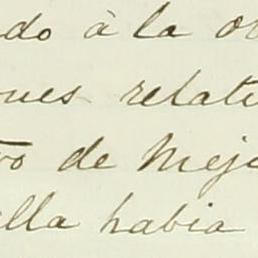 do à la o
ues relati
vo de Mej
lla habia